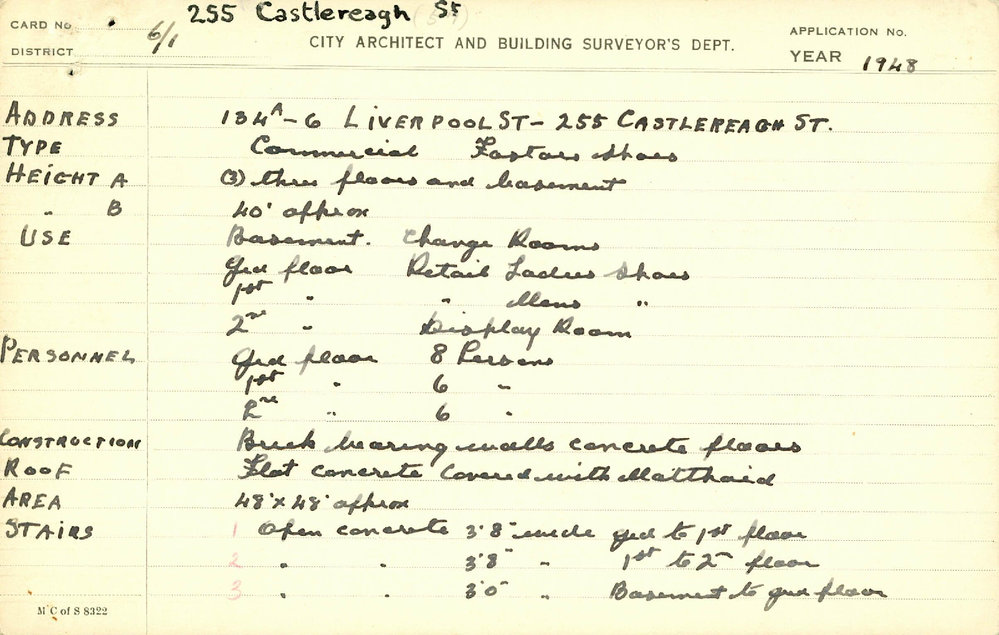 255 Castlereagh St
CARD No.
6/1
DISTRICT
CITY ARCHITECT AND BUILDING SURVEYOR'S DEPT.
APPLICATION No.
YEAR 1948
ADDRESS 134A-6 LIVERPOOL ST - 255 CASTLEREAGH ST.
TYPE Commercial Shoes
HEIGHT A (3) three floors and basement
" B 40' approx
USE Basement. Change Rooms
Grd floor Retail Ladies Shoes
1st " " Mens "
2nd " Display Room
PERSONNEL Grd floor 8 Persons
1st " 6 "
2nd " 6 "
CONSTRUCTION Brick bearing walls concrete floors
ROOF Flat concrete covered with Malthoid
AREA 48' x 48' approx
STAIRS 1 Open concrete 3'8" wide grd to 1st floor
2 " " 3'8" " 1st to 2nd floor
3 " " 3'0" " Basement to grd floor
M C of S 8322